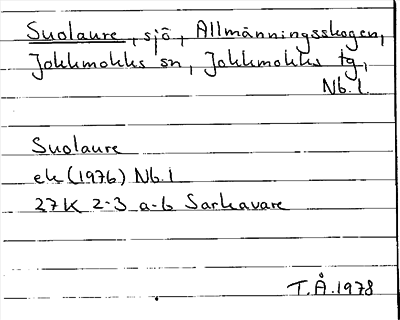 Suolaure, sjö, Allmänningsskogen,
Jokkmokks sn, Jokkmokks tg,
Nb. l.
Suolaure
ek (1976) Nb. l
27K 2-3 a-b Sarkavare
T.Å. 1978